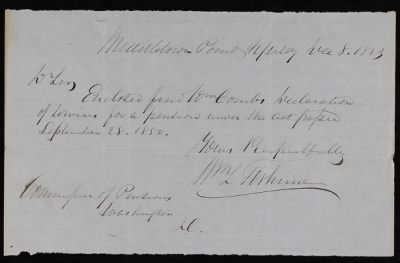 Middletown Point N Jersey Dec 8. 1853
Dr Sir
Enclosed find Wm Combs Declaration
of for a pension under the act passed
September 28. 1850.
Yours Respectfully
Wm L
Commissioner of Pensions
Washington
D.C.